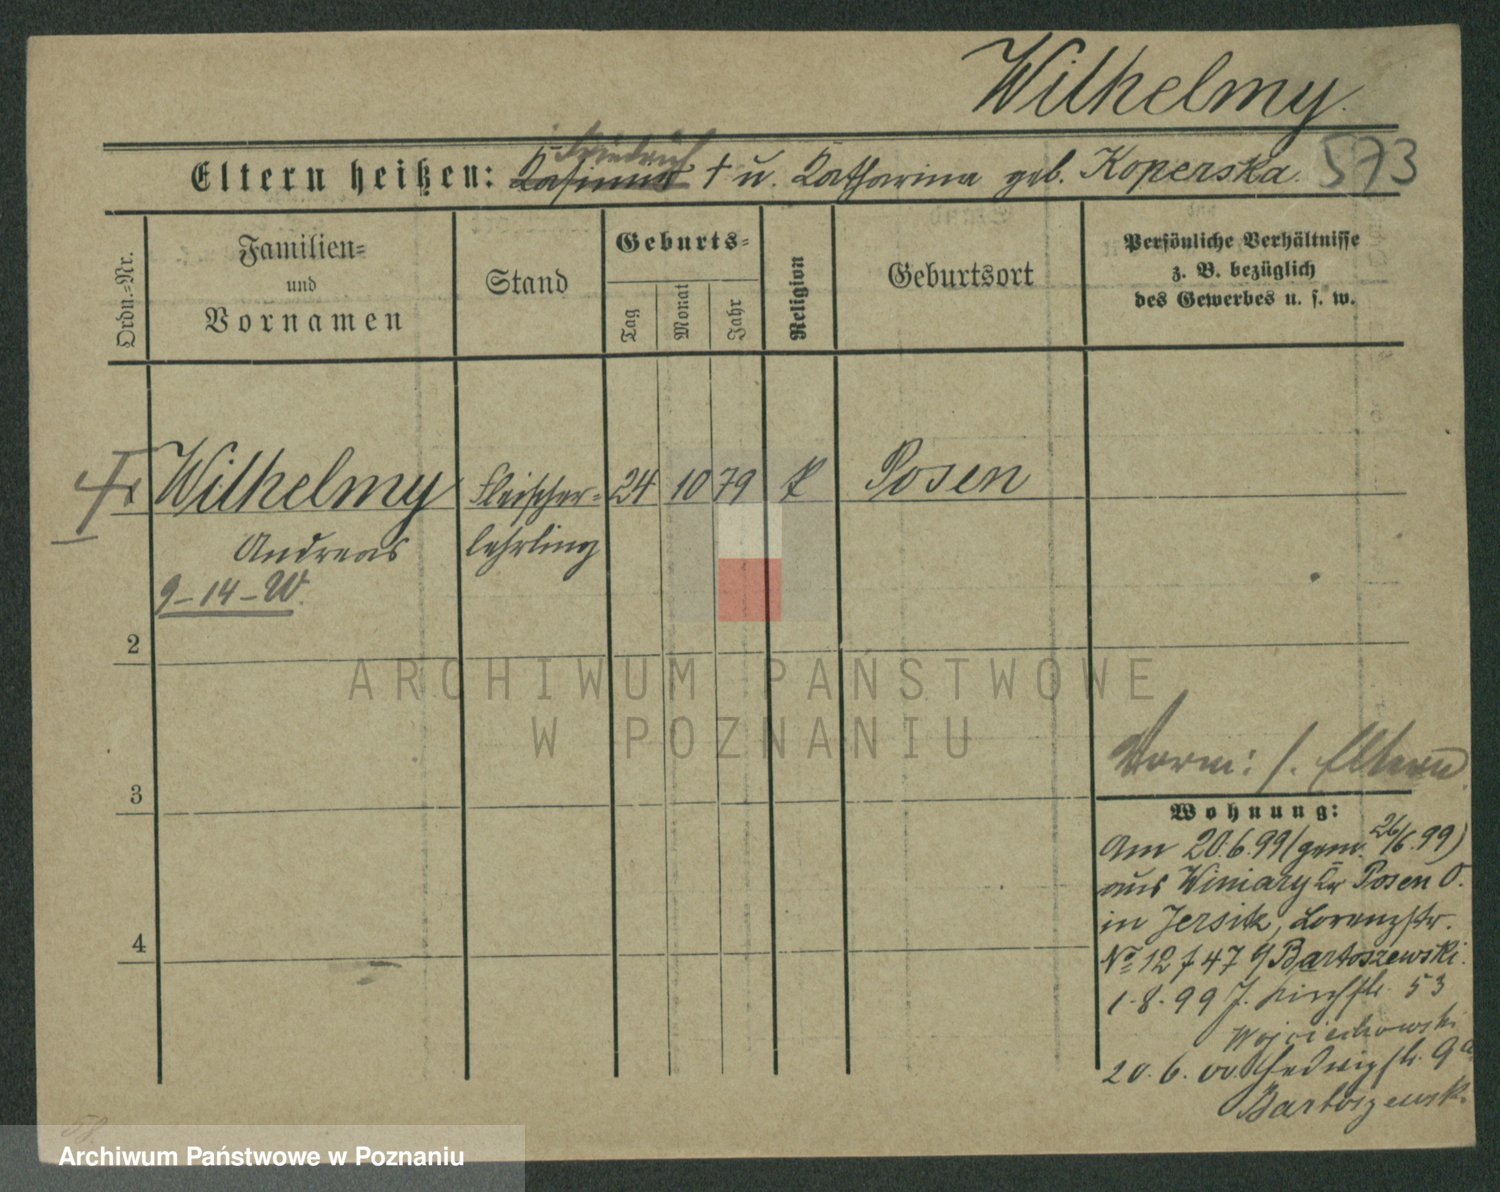 Wilhelmy.
573
Friedrich
Eltern heißen: Casimir † u. Catharina geb. Koperska.
Ordn.=Nr.
Familien=
und
Vornamen
Stand
Geburts=
Tag
Monat
Jahr
Religion
Geburtsort
Persönliche Verhältnisse
z. B. bezüglich
des Gewerbes u. s. w.
Wilhelmy Fleischer= 24 10 79 k Posen
Andreas lehrling
9-14-W.
2
ARCHIWUM PAŃSTWOWE
W POZNANIU
3
4
Vorm: s. Eltern
Wohnung:
Am 20.6.99 (gem. 26/6.99)
aus Winiary Kr Posen O.
in Jersitz, Lorenzstr.
No 12 f 47 b/ Bartoszewski.
1.8.99 J. Kirchstr. 53
Wojciechowski
20.6.00. Hedwigstr. 9a
Bartoszewski
58
Archiwum Państwowe w Poznaniu